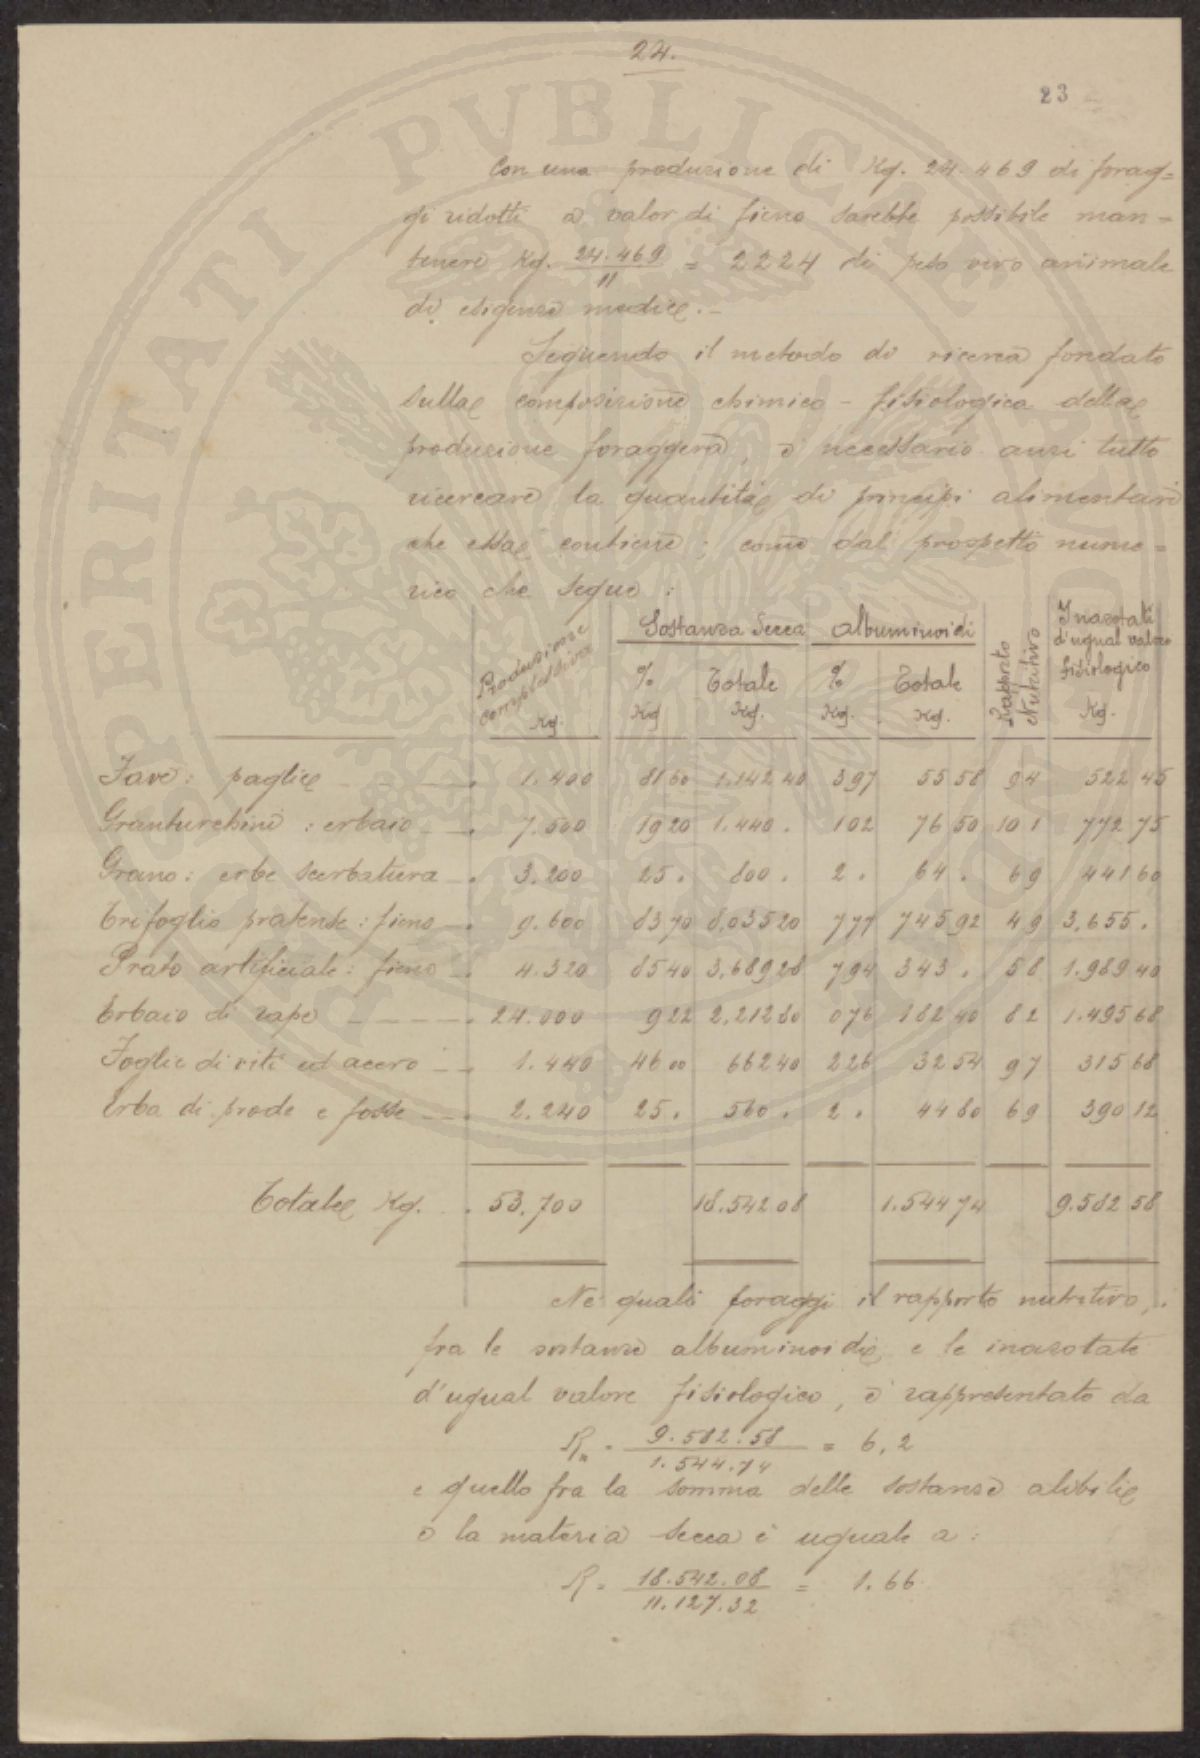 24.
23
Con una produzione di Kg. 24.469 di forag=
gi ridotti a valor di fieno sarebbe possibile man=
tenere Kg. 24.469 / 11 = 2224 di peso vivo animale
di esigenze medie.-
Seguendo il metodo di ricerca fondato
sulla composizione chimico-fisiologica della
produzione foraggera, è necessario anzi tutto
ricercare la quantità di principi alimentari
che essa contiene; come dal prospetto nume=
rico che segue:
Produzione complessiva Kg. | Sostanza Secca % Kg | Totale Kg. | Albuminoidi % Kg. | Totale Kg. | Rapporto Nutritivo | Inazotati d'ugual valore fisiologico Kg.
Fave: paglie 1.400 81 60 1.142 40 3 97 55 58 9 4 522 45
Granturchino: erbaio 7.500 19 20 1.440. 1 02 76 50 10 1 772 75
Grano: erbe scerbatura 3.200 25. 800. 2. 64. 6 9 441 60
Trifoglio pratense: fieno 9.600 83 70 8,035 20 7 77 745 92 4 9 3,655.
Prato artificiale: fieno 4.320 85 40 3,689 28 7 94 343. 5 8 1.989 40
Erbaio di rape 24.000 9 22 2,212 80 0 76 182 40 8 2 1.495 68
Foglie di viti ed acero 1.440 46 00 662 40 2 26 32 54 9 7 315 68
Erba di prode e fosse 2.240 25. 560. 2. 44 80 6 9 390 12
Totale Kg. 53.700 18.542 08 1.544 74 9.582 58
Nei quali foraggi il rapporto nutritivo,
fra le sostanze albuminoidi e le inazotate
d'ugual valore fisiologico, è rappresentato da
Rn = 9.582.58 / 1.544.74 = 6,2
e quello fra la somma delle sostanze alibili
e la materia secca è uguale a:
R = 18.542.08 / 11.127.32 = 1.66
PROSPERITATI PUBLICAE